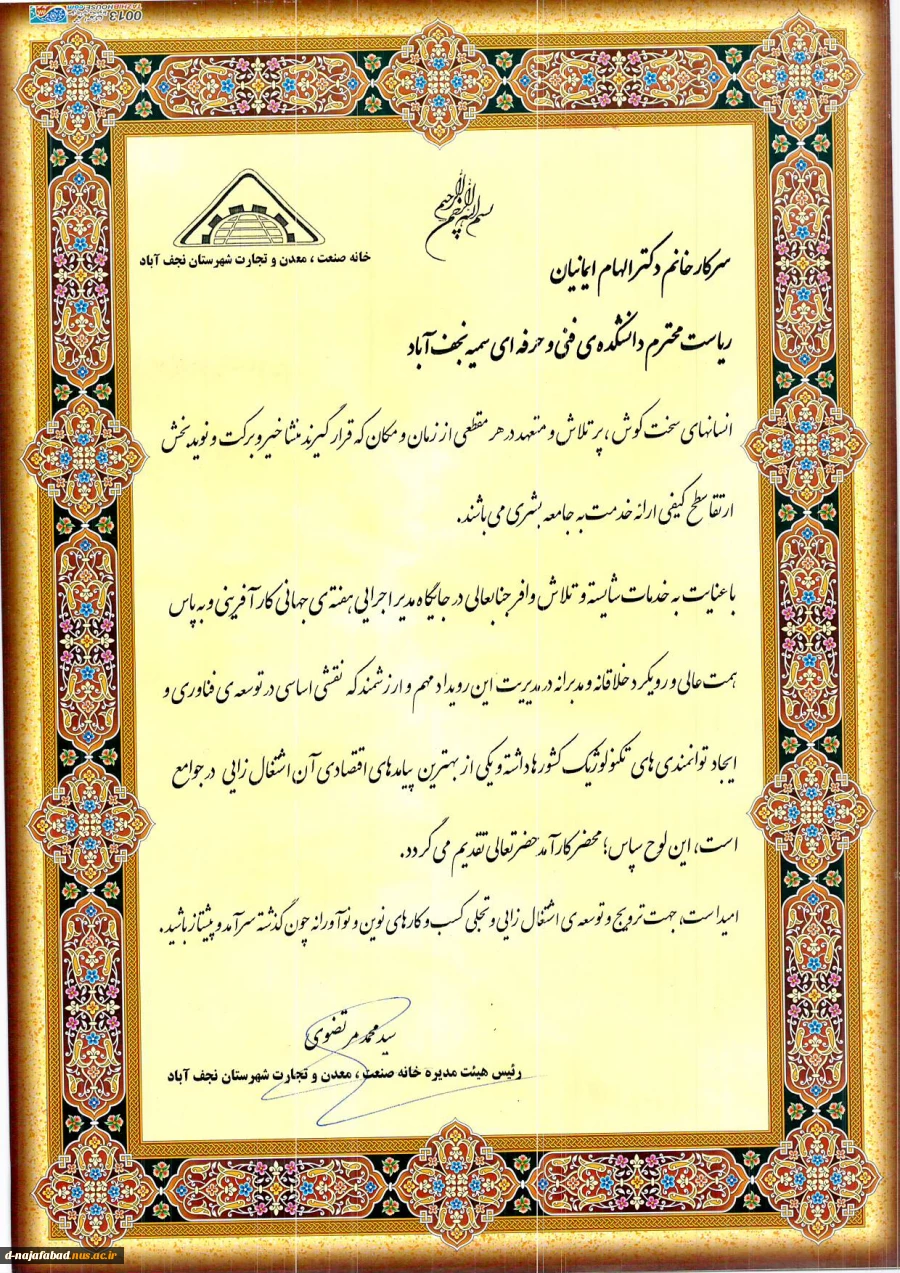 TAZHIBHOUSE.COM
0013
بسم الله الرحمن الرحیم
خانه صنعت ، معدن و تجارت شهرستان نجف آباد
سرکار خانم دکتر الهام ایمانیان
ریاست محترم دانشکده ی فنی و حرفه ای سمیه نجف آباد
انسانهای سخت کوش ، پر تلاش و متعهد در هر مقطعی از زمان و مکان که قرار گیرند منشا خیر و برکت و نوید بخش
ارتقا سطح کیفی ارائه خدمت به جامعه بشری می باشند.
با عنایت به خدمات شایسته و تلاش وافر جنابعالی در جایگاه مدیر اجرایی هفته ی جهانی کارآفرینی و به پاس
همت عالی و رویکرد خلاقانه و مدبرانه در مدیریت این رویداد مهم و ارزشمند که نقشی اساسی در توسعه ی فناوری و
ایجاد توانمندی های تکنولوژیک کشورها داشته و یکی از بهترین پیامدهای اقتصادی آن اشتغال زایی در جوامع
است، این لوح سپاس؛ محضر کارآمد حضرتعالی تقدیم می گردد.
امید است، جهت ترویج و توسعه ی اشتغال زایی و تجلی کسب و کارهای نوین و نوآورانه چون گذشته سرآمد و پیشتاز باشید.
سید محمد مرتضوی
رئیس هیئت مدیره خانه صنعت ، معدن و تجارت شهرستان نجف آباد
d-najafabad.nus.ac.ir